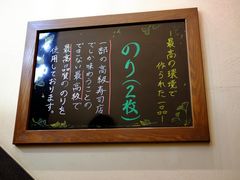 －最高の環境で
作られた一品－
のり(2枚)
一部の高級寿司店
でしか味わうことの
できない最高級で
最高品質ののりを
使用しております。